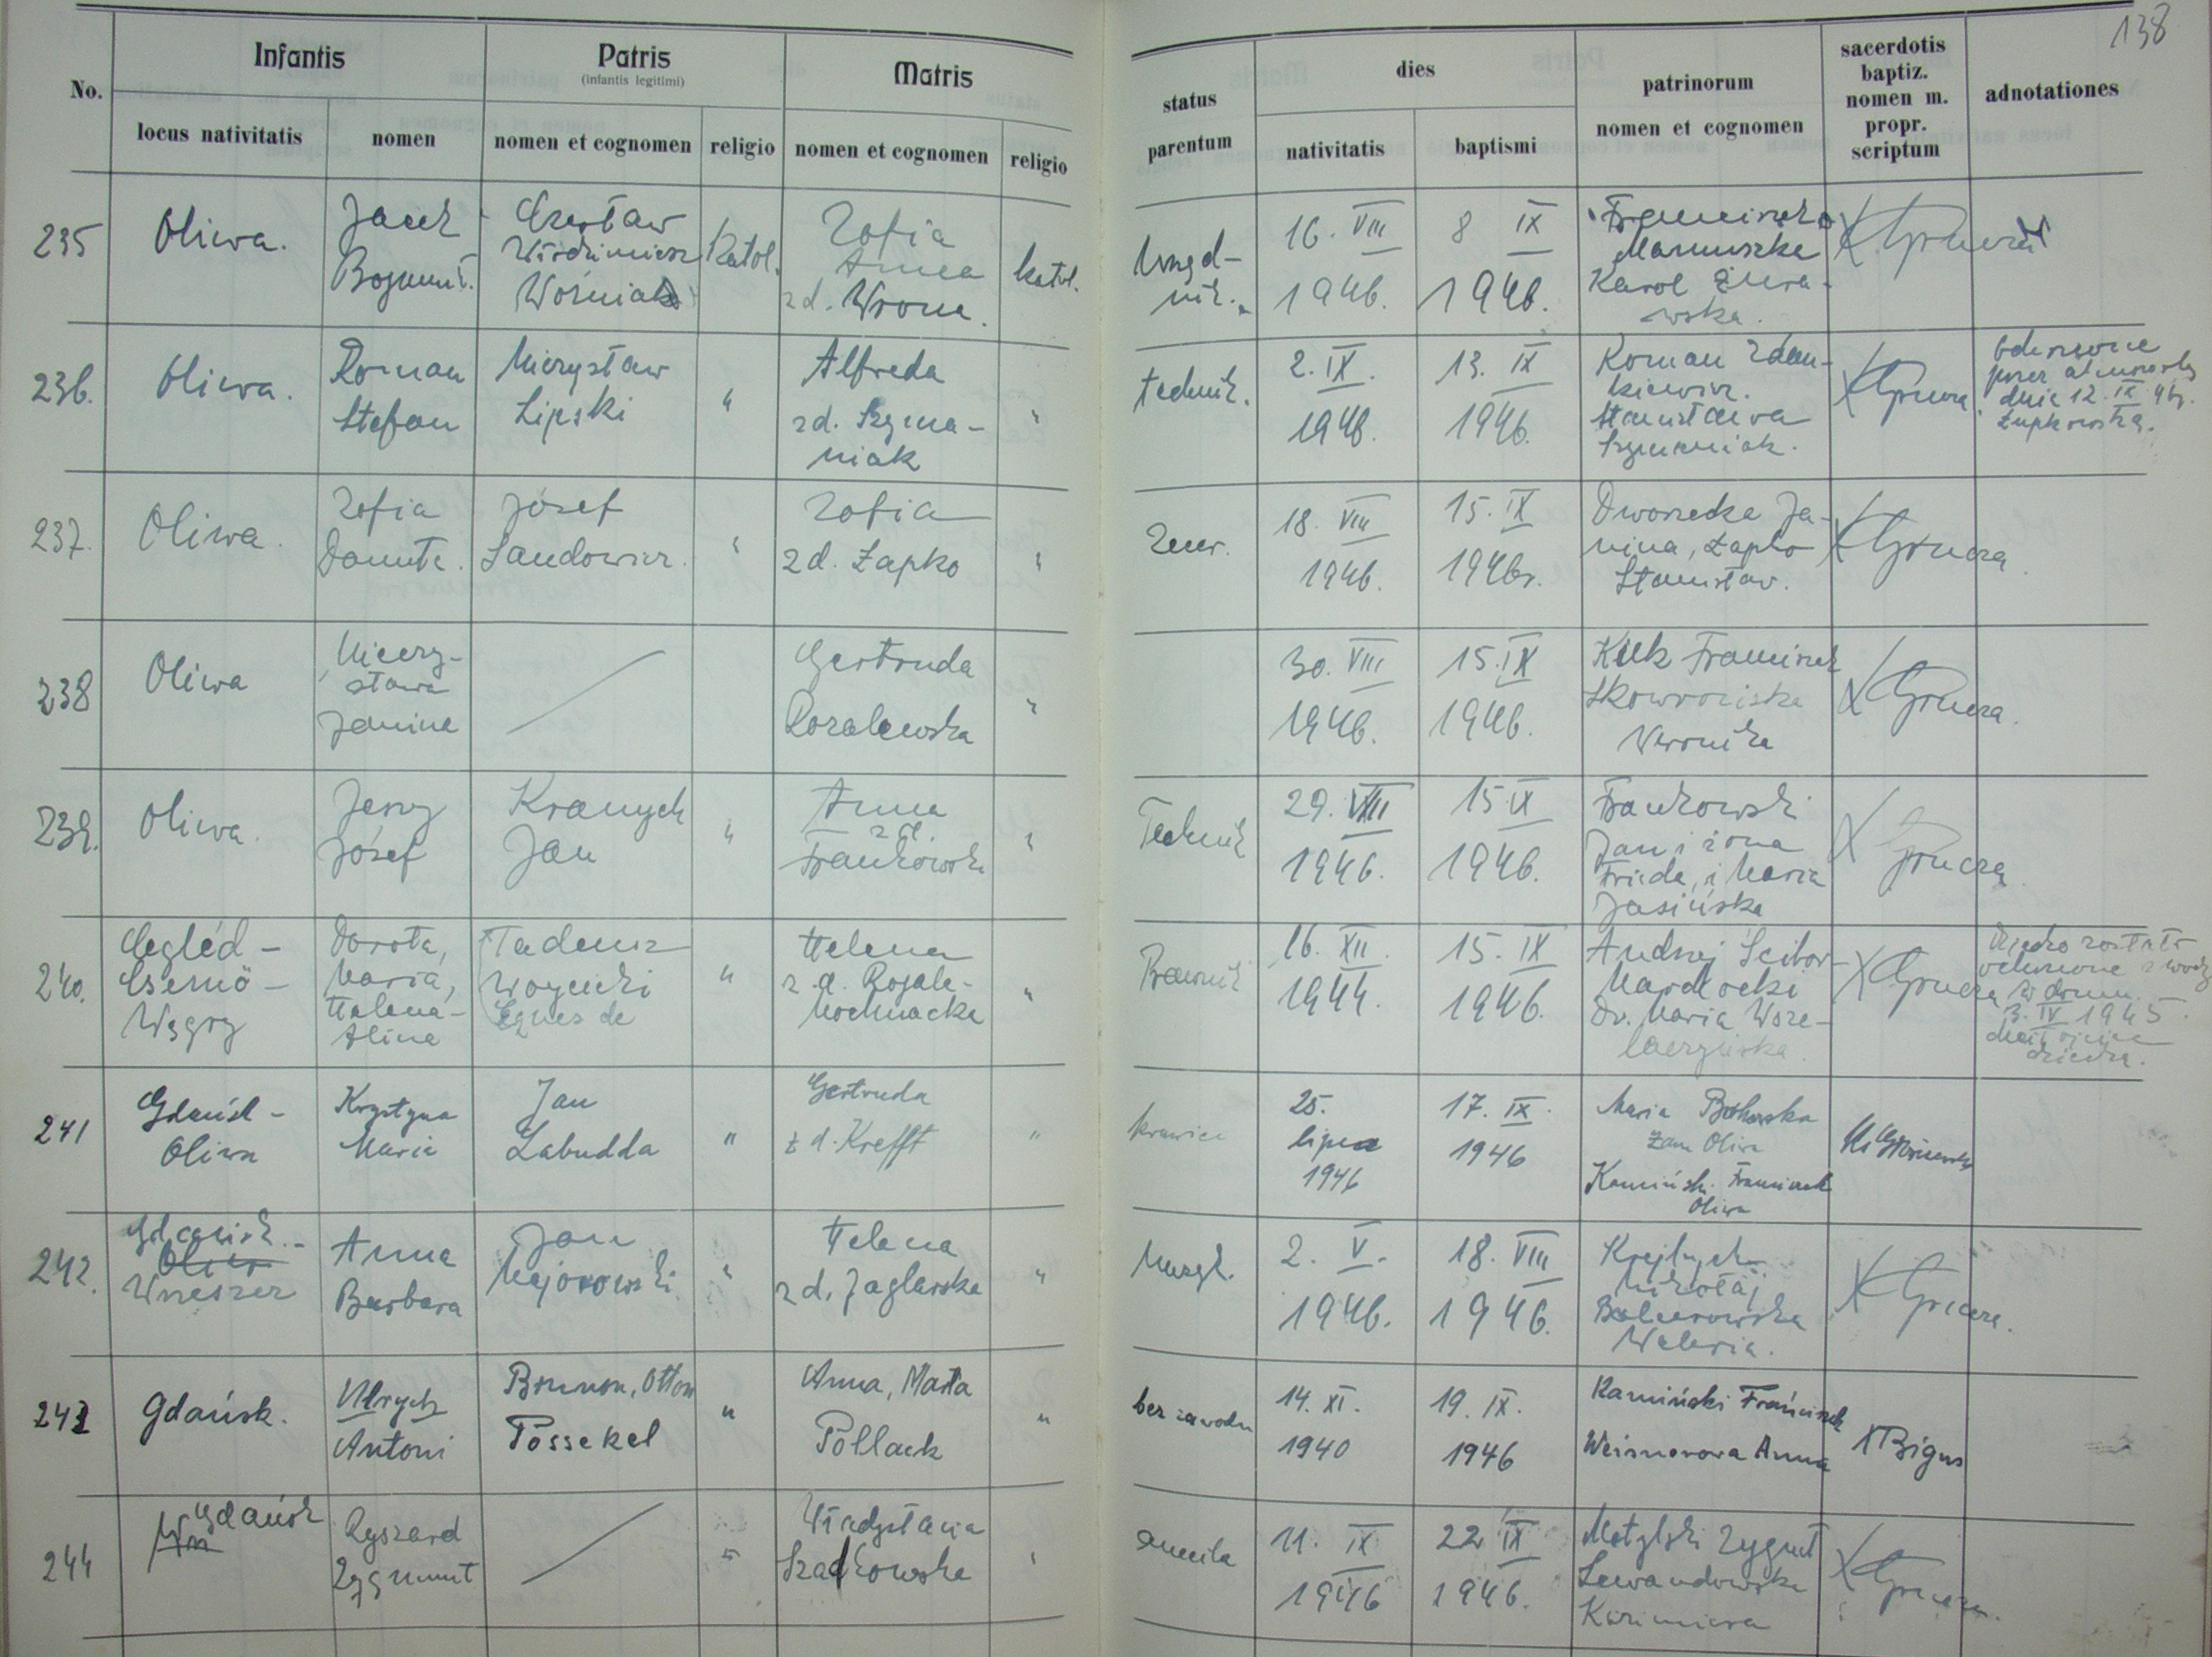 138
Infantis
Patris
(infantis legitimi)
Matris
No.
locus nativitatis
nomen
nomen et cognomen
religio
nomen et cognomen
religio
status
parentum
dies
nativitatis
baptismi
patrinorum
nomen et cognomen
sacerdotis
baptiz.
nomen m.
propr.
scriptum
adnotationes
235
Oliwa.
Jacek
Bogumił.
Czesław
Włodzimierz
Woźniak
Katol.
Zofia
Anna
z d. Wrona.
katol.
Urzęd-
nik.
16. VIII
1946.
8 IX
1946.
Franciszka
Karol
236.
Oliwa.
Roman
Stefan
Mieczysław
Lipski
"
Alfreda
z d. Szyma-
niak
"
technik.
2. IX.
1946.
13. IX
1946.
Roman
Stanisława
Szymaniak.
X Grucza.
dnia 12. IX 46.
237.
Oliwa.
Zofia
Danuta.
Józef
"
Zofia
z d. Łapko
"
18. VIII
1946.
15. IX
1946r.
Dworzecka Ja-
nina, Łapko
Stanisław.
X Grucza.
238
Oliwa
Mieczy-
sława
Janina
Gertruda
"
30. VIII
1946.
15. IX
1946.
Kulk Franciszek
Skowrońska
Weronika
X Grucza.
239.
Oliwa.
Jerzy
Józef
Jan
"
Anna
z d.
"
Technik
29. VIII
1946.
15 IX
1946.
Frankowski
Jan i żona
Frieda, i Maria
Jasińska
X Grucza
240.
Cegléd-
Csemö-
Węgry
Dorota,
Maria,
Helena-
Alina
Tadeusz
Eques de
"
Helena
z d. Rogala-
Mochnacka
"
Prawnik
16. XII.
1944.
15. IX
1946.
Andrzej Ścibor-
Dr. Maria
X Grucza
Dziecko zostało
ochrzczone z wody
w domu
3. IV 1945.
dziecka.
241
Gdańsk-
Oliwa
Krystyna
Maria
Jan
Labudda
"
Gertruda
z d. Krefft
"
krawiec
25.
lipca
1946
17. IX.
1946
Maria
zam Oliwa
Kamiński Franciszek
Oliwa
242.
Gdańsk-
Oliwa
Wrzeszcz
Anna
Barbara
Jan
Majorowski.
"
Helena
z d. Jaglarska
"
2. V.
1946.
18. VIII
1946.
Mikołaj
Waleria.
X Grucza.
243
Gdańsk.
Ulrych
Antoni
Brunon, Otton
Possekel
"
Anna, Marta
Pollack
"
bez zawodu
14. XI.
1940
19. IX.
1946
Kamiński Franciszek
Weisnerowa Anna
X Bigus
244
Gdańsk
Ryszard
Zygmunt
"
Władysława
Szadkowska
"
11. IX
1946
22 IX
1946.
Lewandowska
Kazimiera
X Grucza.